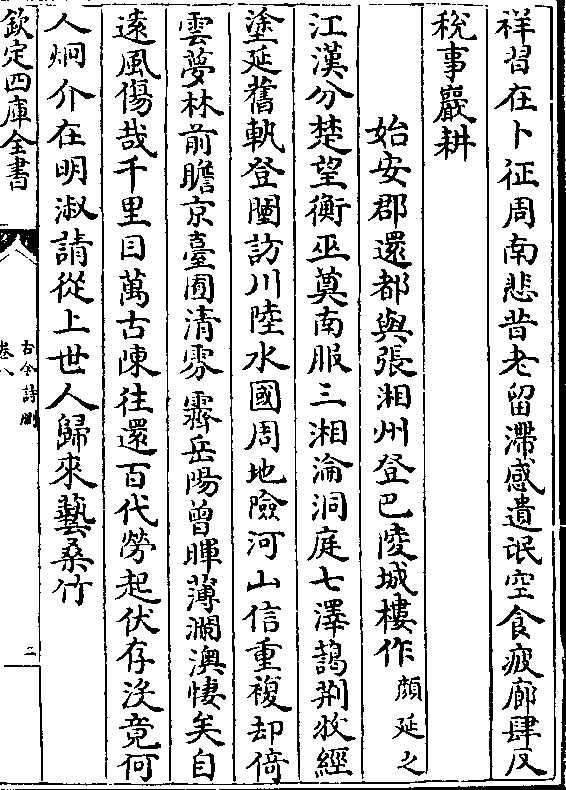 祥習在卜征周南悲昔老留滯感遺氓空食疲廊肆反
稅事巖耕
始安郡還都與張湘州登巴陵城樓作 顔延之
江漢分楚望衡巫奠南服三湘淪洞庭七澤藹荆牧經
塗延舊軌登闉訪川陸水國周地險河山信重複却倚
雲夢林前瞻京臺囿清雰霽岳陽曾暉薄瀾澳悽矣自
遠風傷哉千里目萬古陳往還百代勞起伏存没竟何
人烱介在明淑請從上世人歸來藝桑竹
欽定四庫全書
古今詩刪
卷八
二